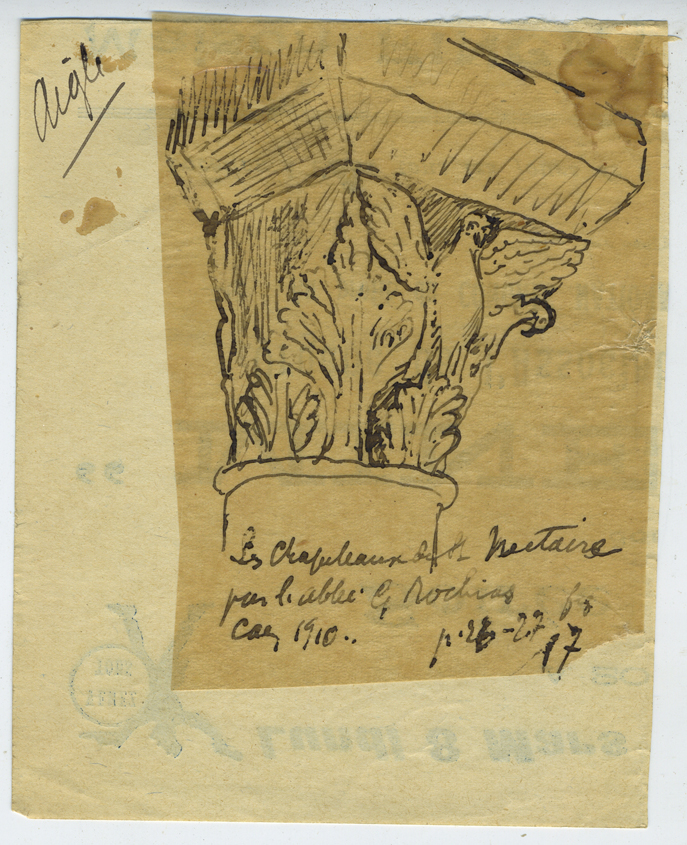 Aigle
Les Chapiteaux de St Nectaire
par l'abbé G Rochias
Caen 1910..
p. 26-27
17
Lundi 8 Mars